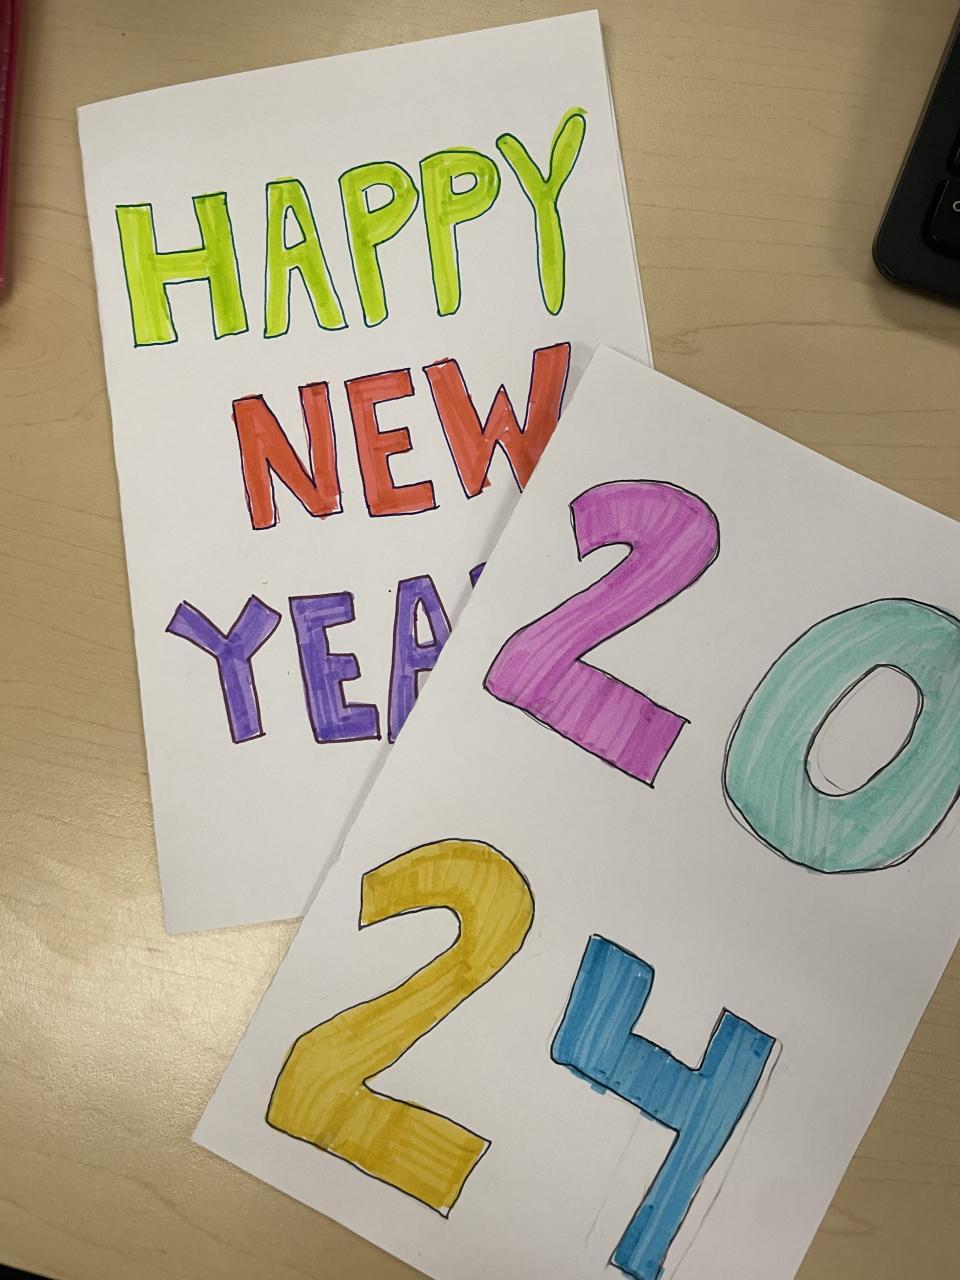 HAPPY
NEW
YEA
20
24